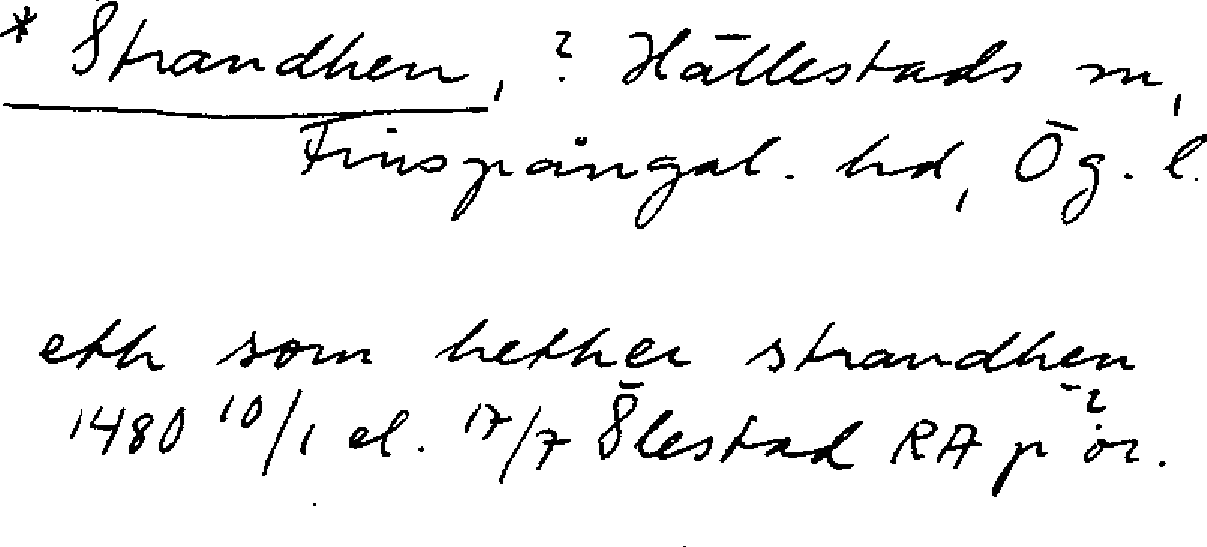 * Strandhen, ? Hällestads sn,
Finspångal. hd, Ög. l.
eth som hether strandhen
1480 10/1 el. 17/7 Ölestad RA p or.